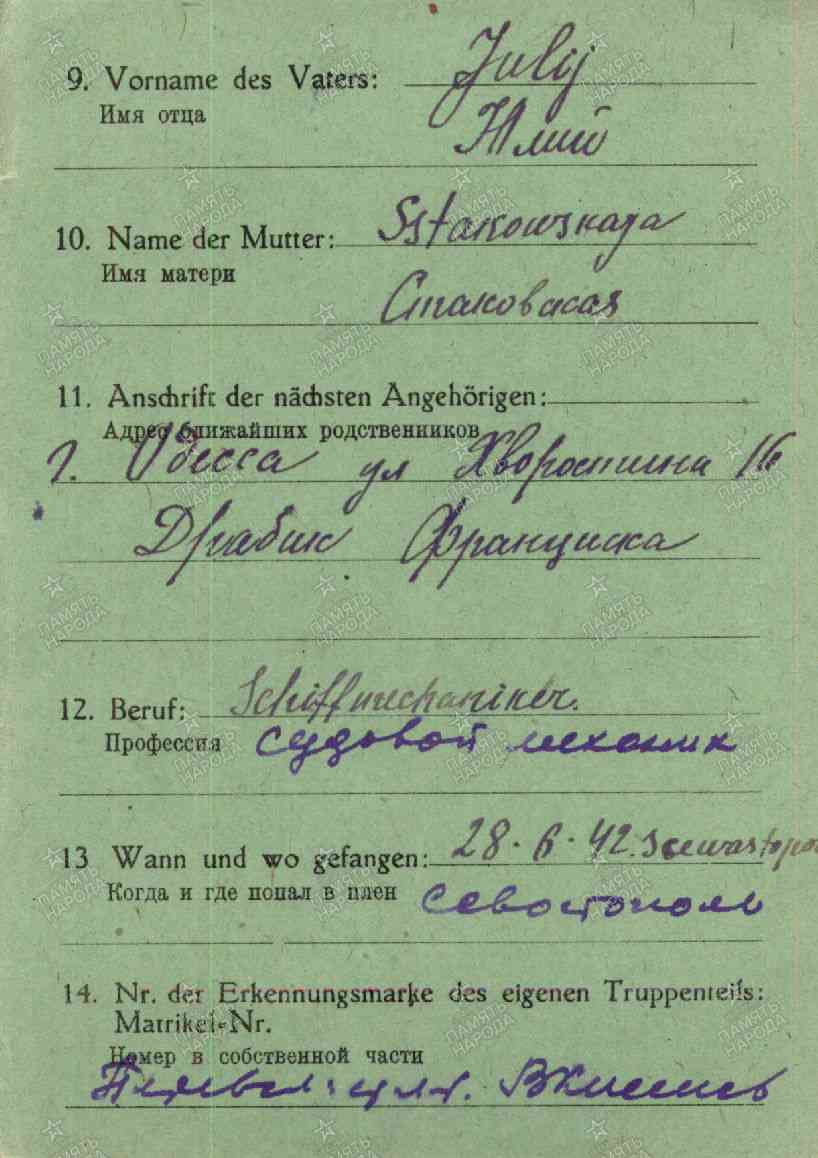 9. Vorname des Vaters: July
Имя отца
Юлий
10. Name der Mutter: Sstakowskaja
Имя матери
Стаковская
11. Anschrift der nächsten Angehörigen:
Адрес ближайших родственников
г. Одесса ул Хворостина 16
Драбик Франциска
12. Beruf: Schiffmechaniker.
Профессия судовой механик
13 Wann und wo gefangen: 28. 6. 42. Ssewastopol
Когда и где попал в плен Севостополь
14. Nr. der Erkennungsmarke des eigenen Truppenteils:
Matrikel-Nr.
Номер в собственной части
ПАМЯТЬ НАРОДА